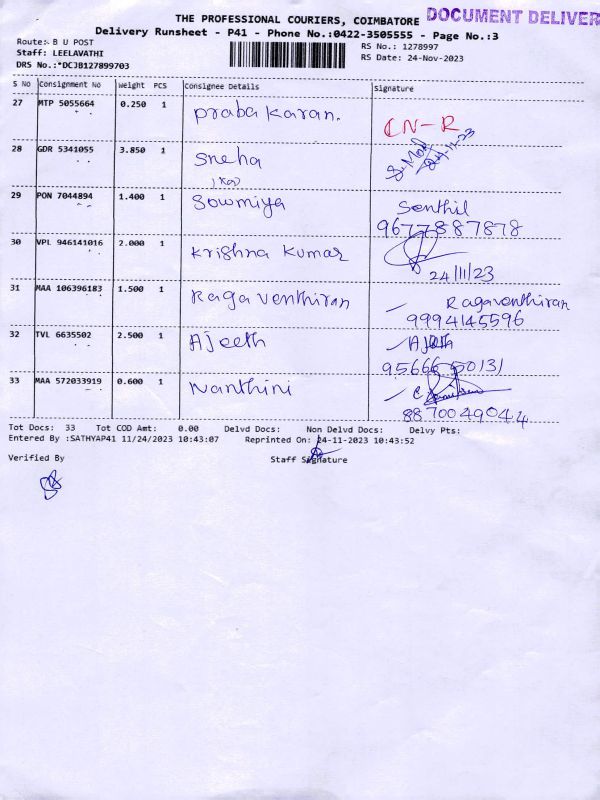 THE PROFESSIONAL COURIERS, COIMBATORE DOCUMENT DELIVER
Delivery Runsheet - P41 - Phone No.:0422-3505555 - Page No.:3
Route:- B U POST RS No.: 1278997
Staff: LEELAVATHI RS Date: 24-Nov-2023
DRS No.:*DCJB127899703
S No Consignment No Weight PCS Consignee Details Signature
27 MTP 5055664 0.250 1 Praba Karan. CN-R
28 GDR 5341055 3.850 1 Sneha
29 PON 7044894 1.400 1 Sowmiya Senthil
9677887878
30 VPL 946141016 2.000 1 Krishna Kumar
24/11/23
31 MAA 106396183 1.500 1 Ragaventhiran Ragaventhiran
9994145596
32 TVL 6635502 2.500 1 Ajeeth Ajeeth
33 MAA 572033919 0.600 1 Nanthini
8870049044
Tot Docs: 33 Tot COD Amt: 0.00 Delvd Docs: Non Delvd Docs: Delvy Pts:
Entered By :SATHYAP41 11/24/2023 10:43:07 Reprinted On: 24-11-2023 10:43:52
Verified By Staff Signature